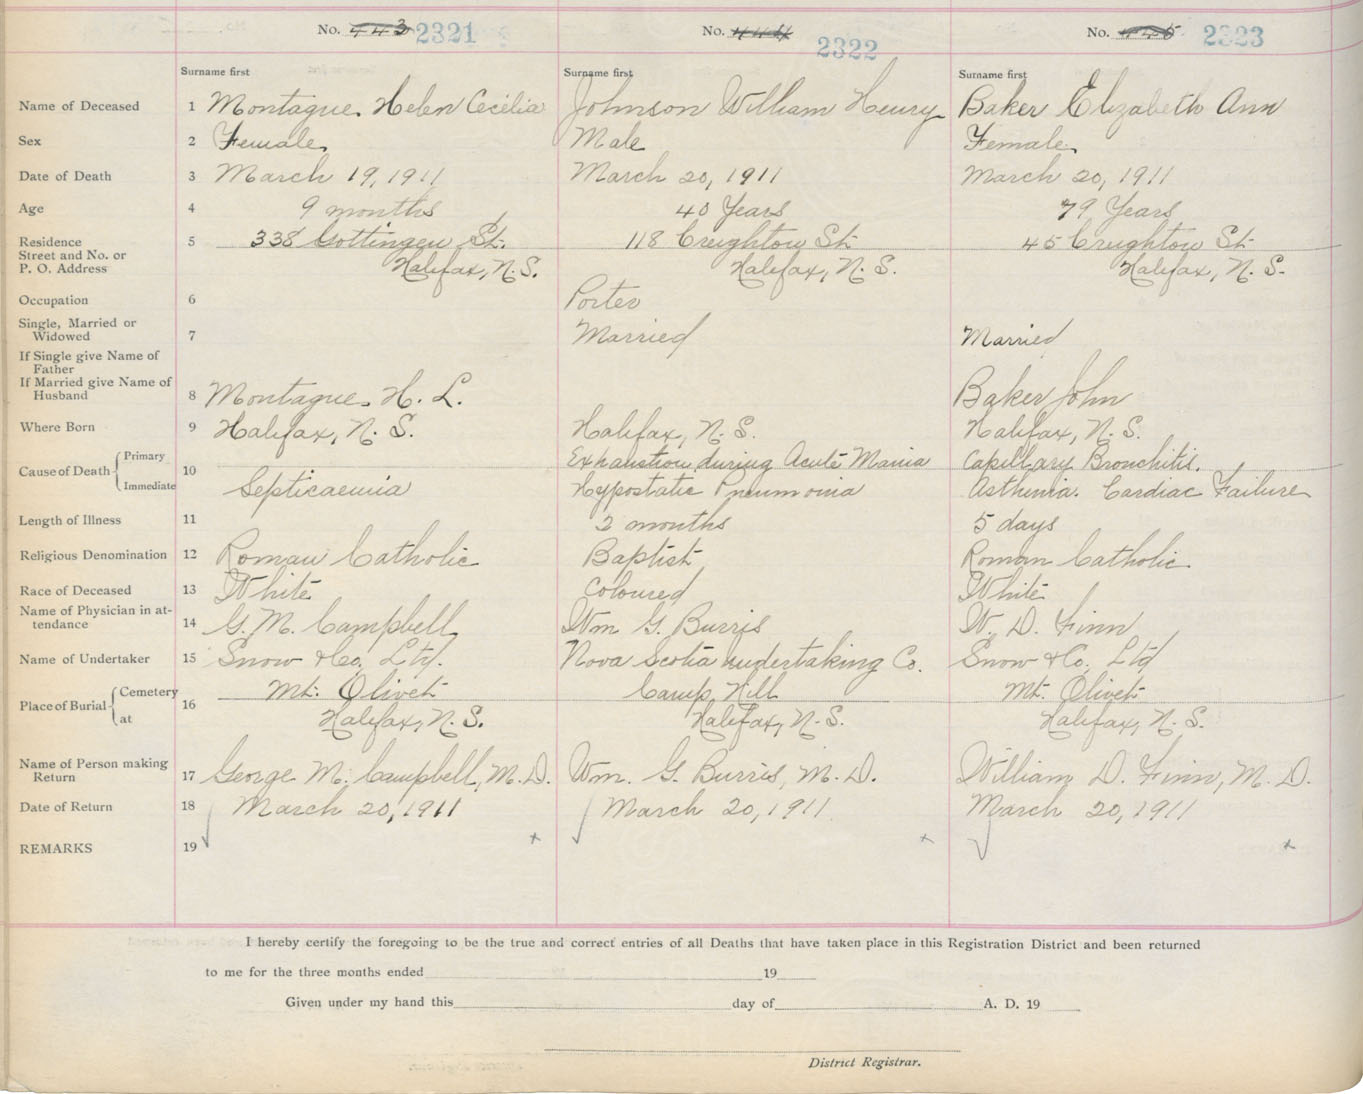 No. 443 2321 No. 444 2322 No. 445 2323
Surname first Surname first Surname first
Name of Deceased 1 Montague, Helen Cecilia Johnson William Henry Baker Elizabeth Ann
Sex 2 Female Male Female
Date of Death 3 March 19, 1911 March 20, 1911 March 20, 1911
Age 4 9 months 40 Years 79 Years
Residence 5 338 Gottingen St. 118 Creighton St. 45 Creighton St.
Street and No. or
P. O. Address Halifax, N. S. Halifax, N. S. Halifax, N. S.
Occupation 6 Porter
Single, Married or
Widowed 7 Married Married
If Single give Name of
Father
If Married give Name of
Husband 8 Montague, H. L. Baker John
Where Born 9 Halifax, N. S. Halifax, N. S. Halifax, N. S.
Cause of Death 10
Primary Exhaustion during Acute Mania Capillary Bronchitis.
Immediate Septicaemia Hypostatic Pneumonia Asthenia. Cardiac Failure
Length of Illness 11 2 months 5 days
Religious Denomination 12 Roman Catholic Baptist Roman Catholic
Race of Deceased 13 White Coloured White
Name of Physician in at-
tendance 14 G. M. Campbell Wm G. Burris W. D. Finn
Name of Undertaker 15 Snow & Co. Ltd. Nova Scotia undertaking Co. Snow & Co. Ltd
Place of Burial 16
Cemetery Mt. Olivet Camp Hill Mt. Olivet
at Halifax, N. S. Halifax, N. S. Halifax, N. S.
Name of Person making
Return 17 George M. Campbell, M. D. Wm. G. Burris, M. D. William D. Finn, M. D.
Date of Return 18 March 20, 1911 March 20, 1911 March 20, 1911
REMARKS 19
I hereby certify the foregoing to be the true and correct entries of all Deaths that have taken place in this Registration District and been returned
to me for the three months ended 19
Given under my hand this day of A. D. 19
District Registrar.